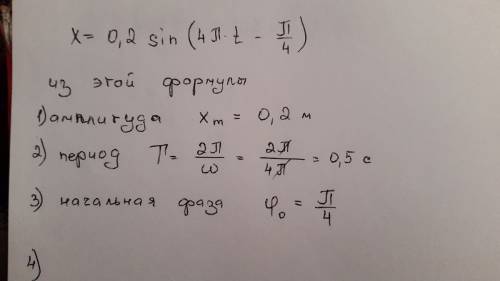 x = 0,2 sin (4π·t − π/4)
из этой формулы
1) амплитуда xm = 0,2 м
2) период T = 2π/ω = 2π/4π = 0,5 с
3) начальная фаза φ₀ = π/4
4)